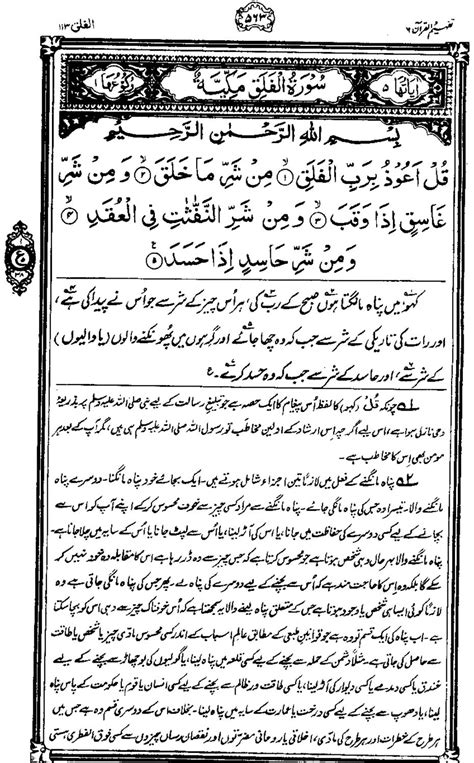 تفہیم القرآن ۶
۵۶۳
الفلق ۱۱۳
اٰیَاتُهَا ۵
سُوْرَةُ الْفَلَقِ مَكِّيَّةٌ
رُكُوْعُهَا ۱
بِسْمِ اللّٰهِ الرَّحْمٰنِ الرَّحِيْمِ
قُلْ اَعُوْذُ بِرَبِّ الْفَلَقِ ۱ مِنْ شَرِّ مَا خَلَقَ ۲ وَ مِنْ شَرِّ
غَاسِقٍ اِذَا وَقَبَ ۳ وَ مِنْ شَرِّ النَّفّٰثٰتِ فِی الْعُقَدِ ۴
وَ مِنْ شَرِّ حَاسِدٍ اِذَا حَسَدَ ۵
ع
کہو، میں پناہ مانگتا ہوں صبح کے رب کی، ہر اُس چیز کے شر سے جو اُس نے پیدا کی ہے،
اور رات کی تاریکی کے شر سے جب کہ وہ چھا جائے، اور گرہوں میں پھونکنے والوں (یا والیوں)
کے شر سے، اور حاسد کے شر سے جب کہ وہ حسد کرے۔ ع
۱؎ چونکہ قُلْ (کہو) کا لفظ اُس پیغام کا ایک حصہ ہے جو تبلیغِ رسالت کے لیے نبی صلی اللہ علیہ وسلم پر بذریعۂ
وحی نازل ہوا ہے، اس لیے اگرچہ اس ارشاد کے اولین مخاطب تو رسول اللہ صلی اللہ علیہ وسلم ہی ہیں، مگر آپ کے بعد ہر
مومن بھی اس کا مخاطب ہے۔
۲؎ پناہ مانگنے کے فعل میں لازماً تین اجزاء شامل ہوتے ہیں۔ ایک بجائے خود پناہ مانگنا۔ دوسرے پناہ
مانگنے والا۔ تیسرا وہ جس کی پناہ مانگی جائے۔ پناہ مانگنے سے مراد کسی چیز سے خوف محسوس کر کے اپنے آپ کو اس سے
بچانے کے لیے کسی دوسرے کی حفاظت میں جانا، یا اس کی آڑ لینا، یا اس سے لپٹ جانا یا اس کے سایہ میں چلا جانا ہے۔
پناہ مانگنے والا بہرحال وہی شخص ہوتا ہے جو محسوس کرتا ہے کہ جس چیز سے وہ ڈر رہا ہے اس کا مقابلہ وہ خود نہیں کر
سکے گا بلکہ وہ اِس کا حاجت مند ہے کہ اُس سے بچنے کے لیے دوسرے کی پناہ لے۔ پھر جس کی پناہ مانگی جاتی ہے وہ
لازماً کوئی ایسا ہی شخص یا وجود ہوتا ہے جس کے متعلق پناہ لینے والا یہ سمجھتا ہے کہ اُس خوفناک چیز سے وہی اس کو بچا سکتا
ہے۔ اب پناہ کی ایک قسم تو وہ ہے جو قوانینِ طبعی کے مطابق عالمِ اسباب کے اندر کسی محسوس مادی چیز یا شخص یا طاقت
سے حاصل کی جاتی ہے۔ مثلاً دشمن کے حملہ سے بچنے کے لیے کسی قلعہ میں پناہ لینا، یا گولیوں کی بوچھاڑ سے بچنے کے لیے
خندق یا کسی دمدمے یا کسی دیوار کی آڑ لینا، یا کسی طاقت ور ظالم سے بچنے کے لیے کسی انسان یا قوم یا حکومت کے پاس پناہ
لینا، یا دھوپ سے بچنے کے لیے کسی درخت یا عمارت کے سایہ میں پناہ لینا۔ بخلاف اس کے دوسری قسم وہ ہے جس میں
ہر طرح کے خطرات اور ہر طرح کی مادّی، اخلاقی یا روحانی مضرتوں اور نقصان رساں چیزوں سے کسی فوق الفطری ہستی